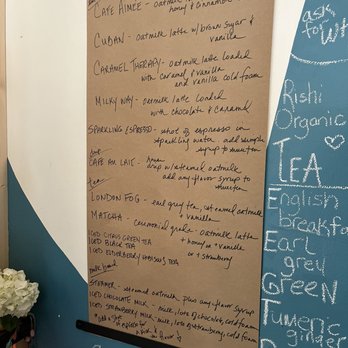 CAFE AIMEE - oatmilk
honey & cinnamon
CUBAN - oatmilk latte w/brown sugar &
vanilla
CARAMEL THERAPY - oatmilk latte loaded
with caramel & vanilla
and vanilla cold foam
MILKY WAY - oatmilk latte loaded
with chocolate & caramel
SPARKLING ESPRESSO - shot of espresso in
sparkling water add simple
syrup to sweeten
CAFE AU LAIT - house
drip w/steamed oatmilk
add any flavor syrup to
sweeten
tea
LONDON FOG - earl grey tea, steamed oatmilk
vanilla
MATCHA - ceremonial grade - oatmilk latte
+ honey or vanilla
or + strawberry
ICED CITRUS GREEN TEA
ICED BLACK TEA
ICED ELDERBERRY HIBISCUS TEA
milk based
STEAMER - steamed oatmilk plus any flavor syrup
ICED CHOCOLATE MILK - milk, lots of chocolate, cold foam
ICED STRAWBERRY MILK - milk, lots of strawberry, cold foam
ask
for
Rishi
Organic
TEA
English
breakfa
Earl
grey
GREEN
Tumeric
Ginger